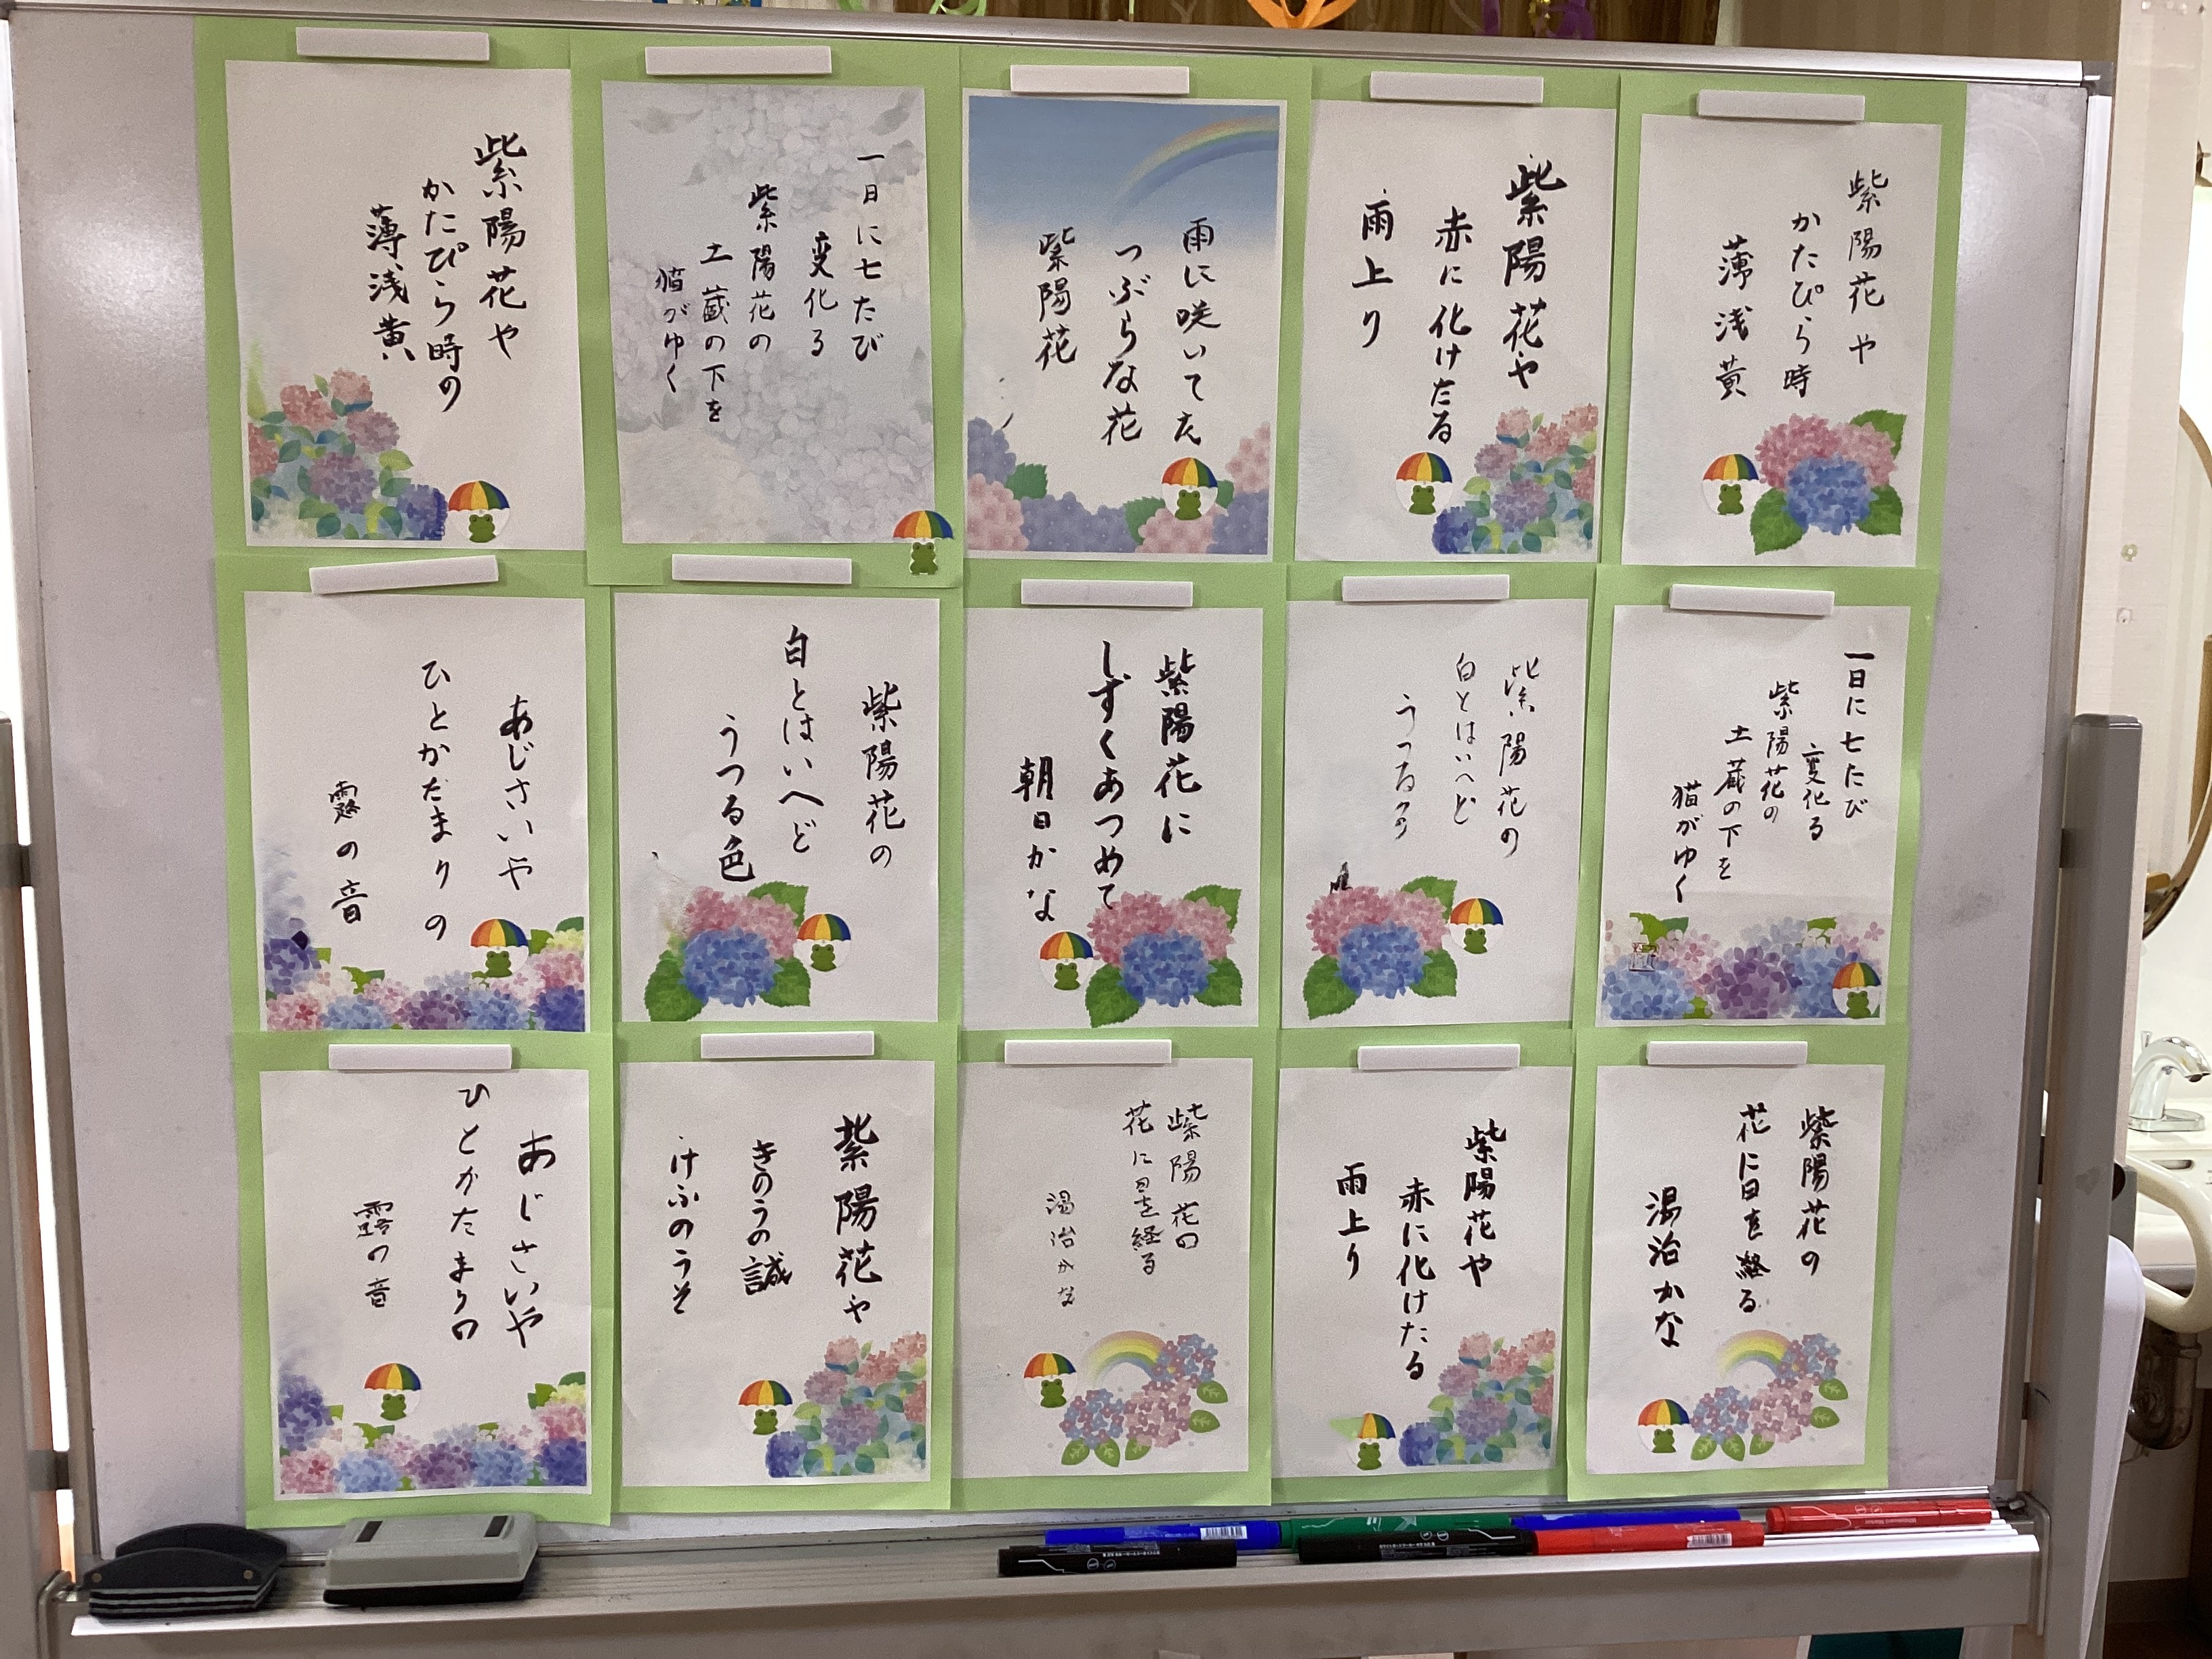 紫陽花や
かたぴら時
薄浅黄
紫陽花や
赤に化けたる
雨上り
雨に咲いてえ
つぶらな花
紫陽花
一日に七たび
変化る
紫陽花の
土蔵の下を
猫がゆく
紫陽花や
かたぴら時の
薄浅黄
一日に七たび
変化る
紫陽花の
土蔵の下を
猫がゆく
紫陽花の
白とはいへど
うつる
紫陽花に
しずくあつめて
朝日かな
紫陽花の
白とはいへど
うつる色
あじさいや
ひとかたまりの
露の音
紫陽花の
花に日を経る
湯治かな
紫陽花や
赤に化けたる
雨上り
紫陽花の
花に日を経る
湯治かな
紫陽花や
きのうの誠
けふのうそ
あじさいや
ひとかたまりの
露の音